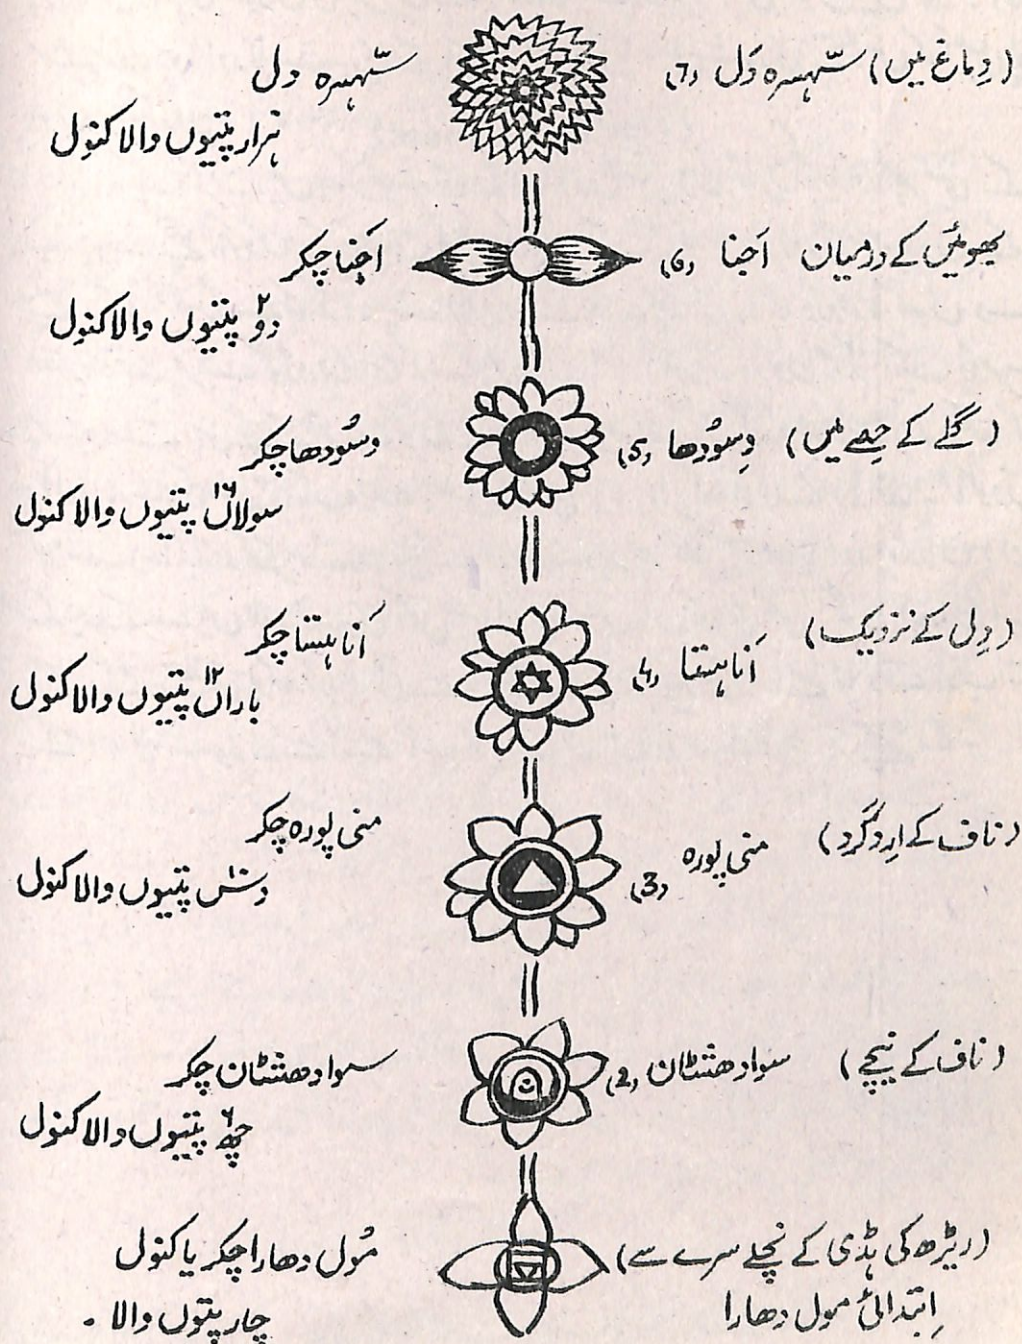 (دِماغ میں) سّہسرہ دَل (7)
سّہسرہ دل
ہزار پتیوں والا کنول
بھوئیں کے درمیان اَجنا (6)
اَجنا چکر
دو۲ پتیوں والا کنول
(گلے کے حِصے میں) وِسُودھا (5)
وسُودھا چکر
سولاں۱۶ پتیوں والا کنول
(دِل کے نزدیک) اَناہتنا (4)
اَناہتنا چکر
باراں۱۲ پتیوں والا کنول
(ناف کے اِردگرد) منی پورہ (3)
منی پورہ چکر
دس۱۰ پتیوں والا کنول
(ناف کے نیچے) سوادھشٹان (2)
سوادھشٹان چکر
چھ۶ پتیوں والا کنول
(ریڑھ کی ہڈی کے نچلے سرے سے)
اِبتدائی مول دھارا
مُول دھارا چکر یا کنول
چار پتوں والا ۔